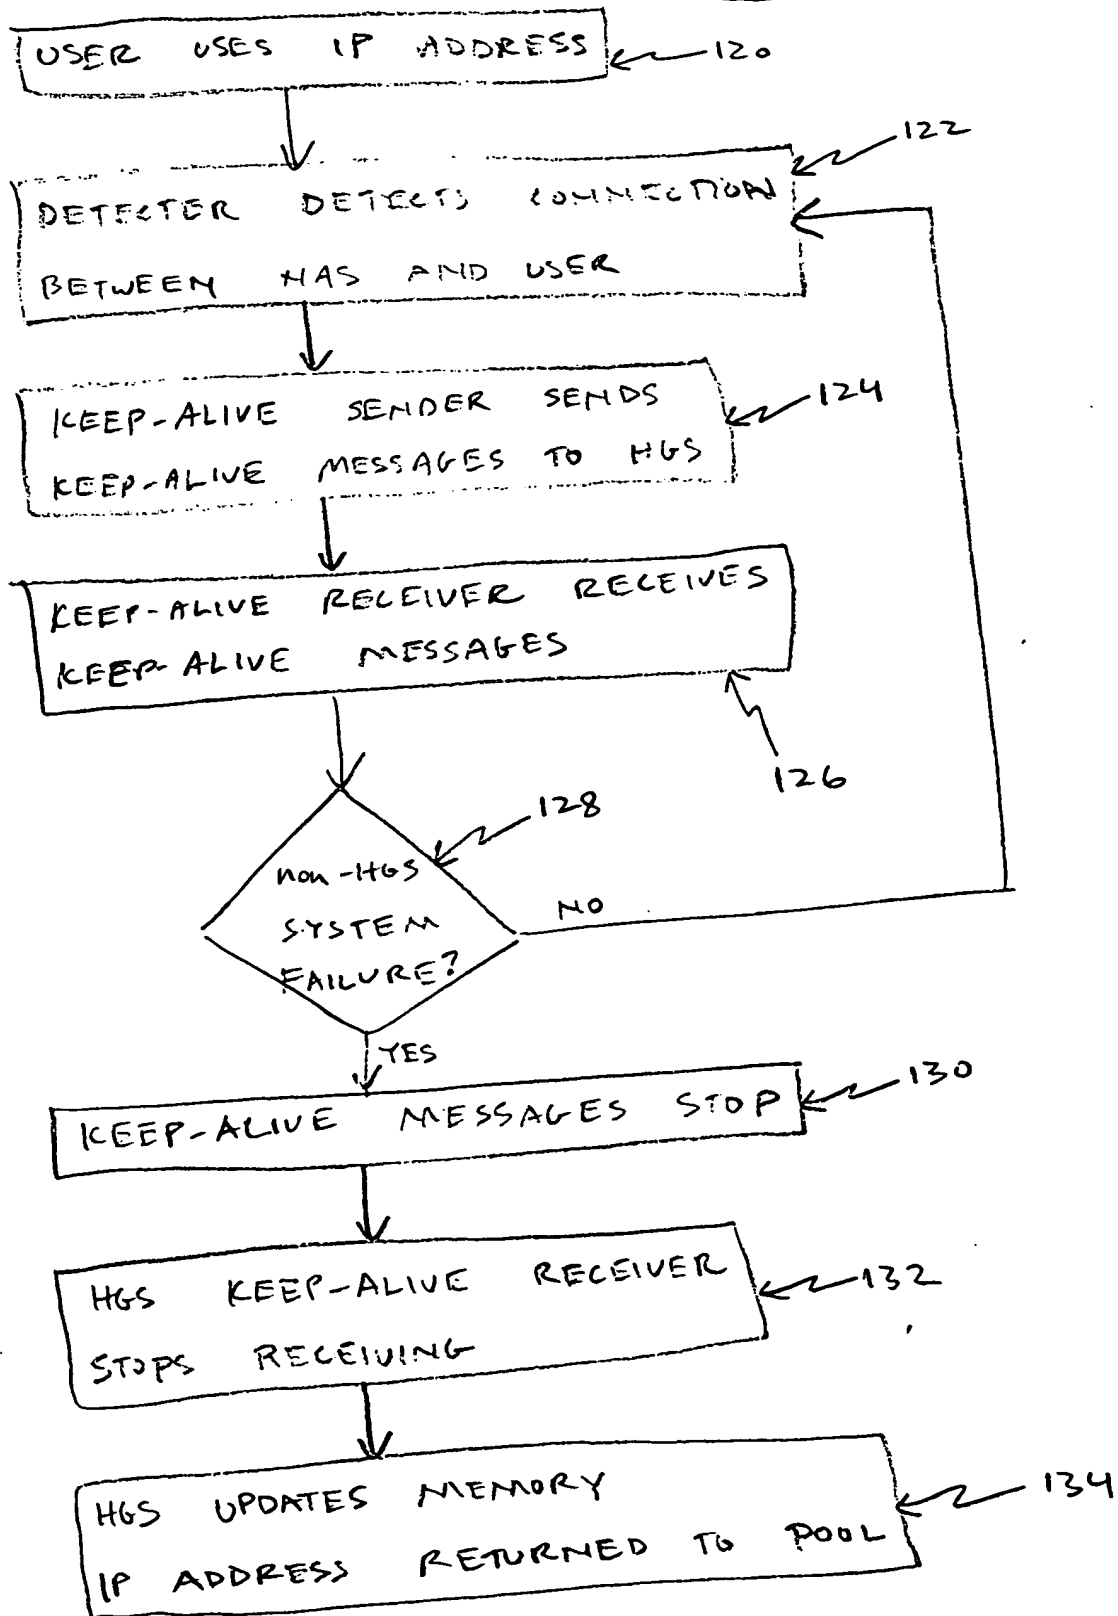 USER USES IP ADDRESS
120
122
DETECTER DETECTS CONNECTION
BETWEEN NAS AND USER
KEEP-ALIVE SENDER SENDS
KEEP-ALIVE MESSAGES TO HGS
124
KEEP-ALIVE RECEIVER RECEIVES
KEEP-ALIVE MESSAGES
126
128
non-HGS
SYSTEM
FAILURE?
NO
YES
KEEP-ALIVE MESSAGES STOP
130
HGS KEEP-ALIVE RECEIVER
STOPS RECEIVING
132
HGS UPDATES MEMORY
IP ADDRESS RETURNED TO POOL
134